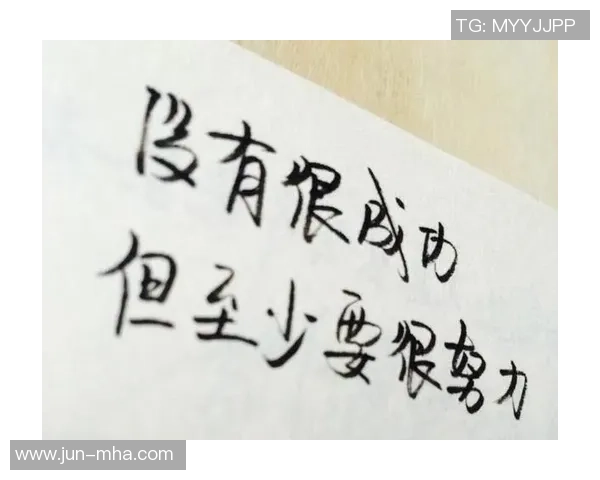 TG: MYYJJPP
没有很成功
但至少要很努力
www.jun-mha.com